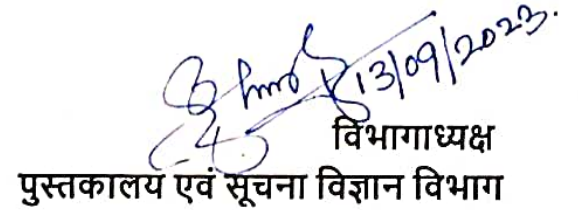 13/09/2023.
विभागाध्यक्ष
पुस्तकालय एवं सूचना विज्ञान विभाग